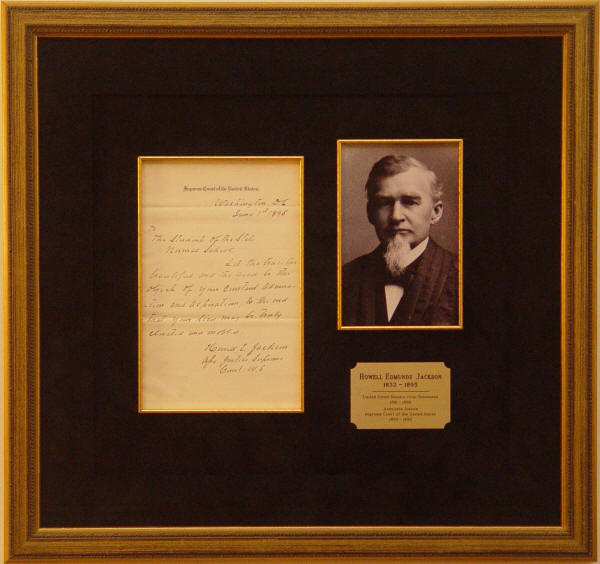 Supreme Court of the United States,
Washington, D.C.
June 1st 1895
To
The Student of the State
Normal School
Let the true, the
beautiful and the good be the
objects of your constant
and aspiration, to the end
that your lives may be truly
elevated and
Howell E. Jackson
Justice Supreme
Court U.S
HOWELL EDMUNDS JACKSON
1832 - 1895
United States Senator from Tennessee
1881 - 1886
Associate Justice
Supreme Court of the United States
1893 - 1895